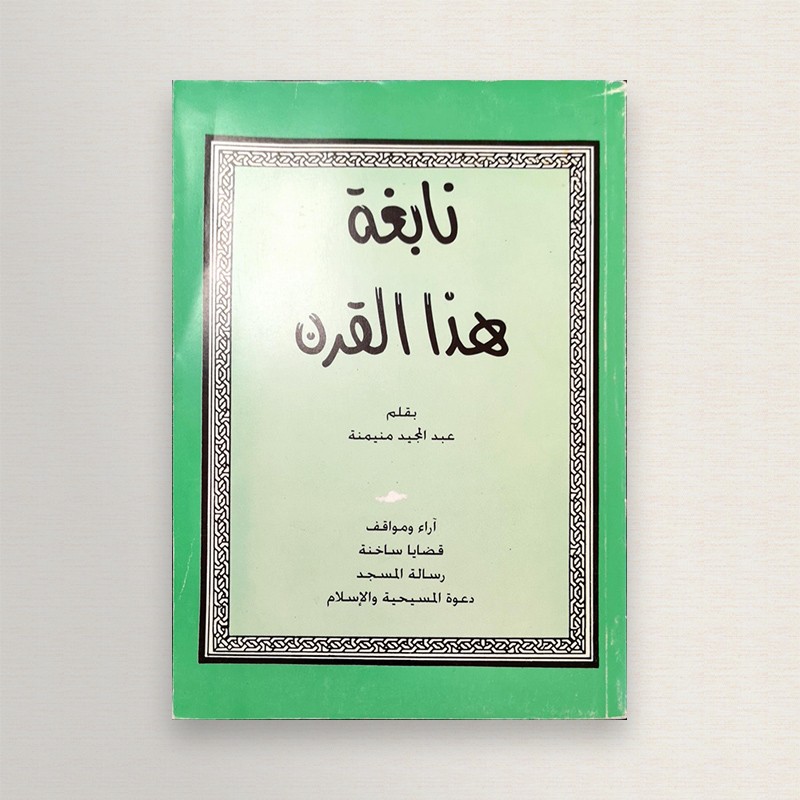 نابغة
هذا القرن
بقلم
عبد المجيد منيمنة
آراء ومواقف
قضايا ساخنة
رسالة المسجد
دعوة المسيحية والإسلام